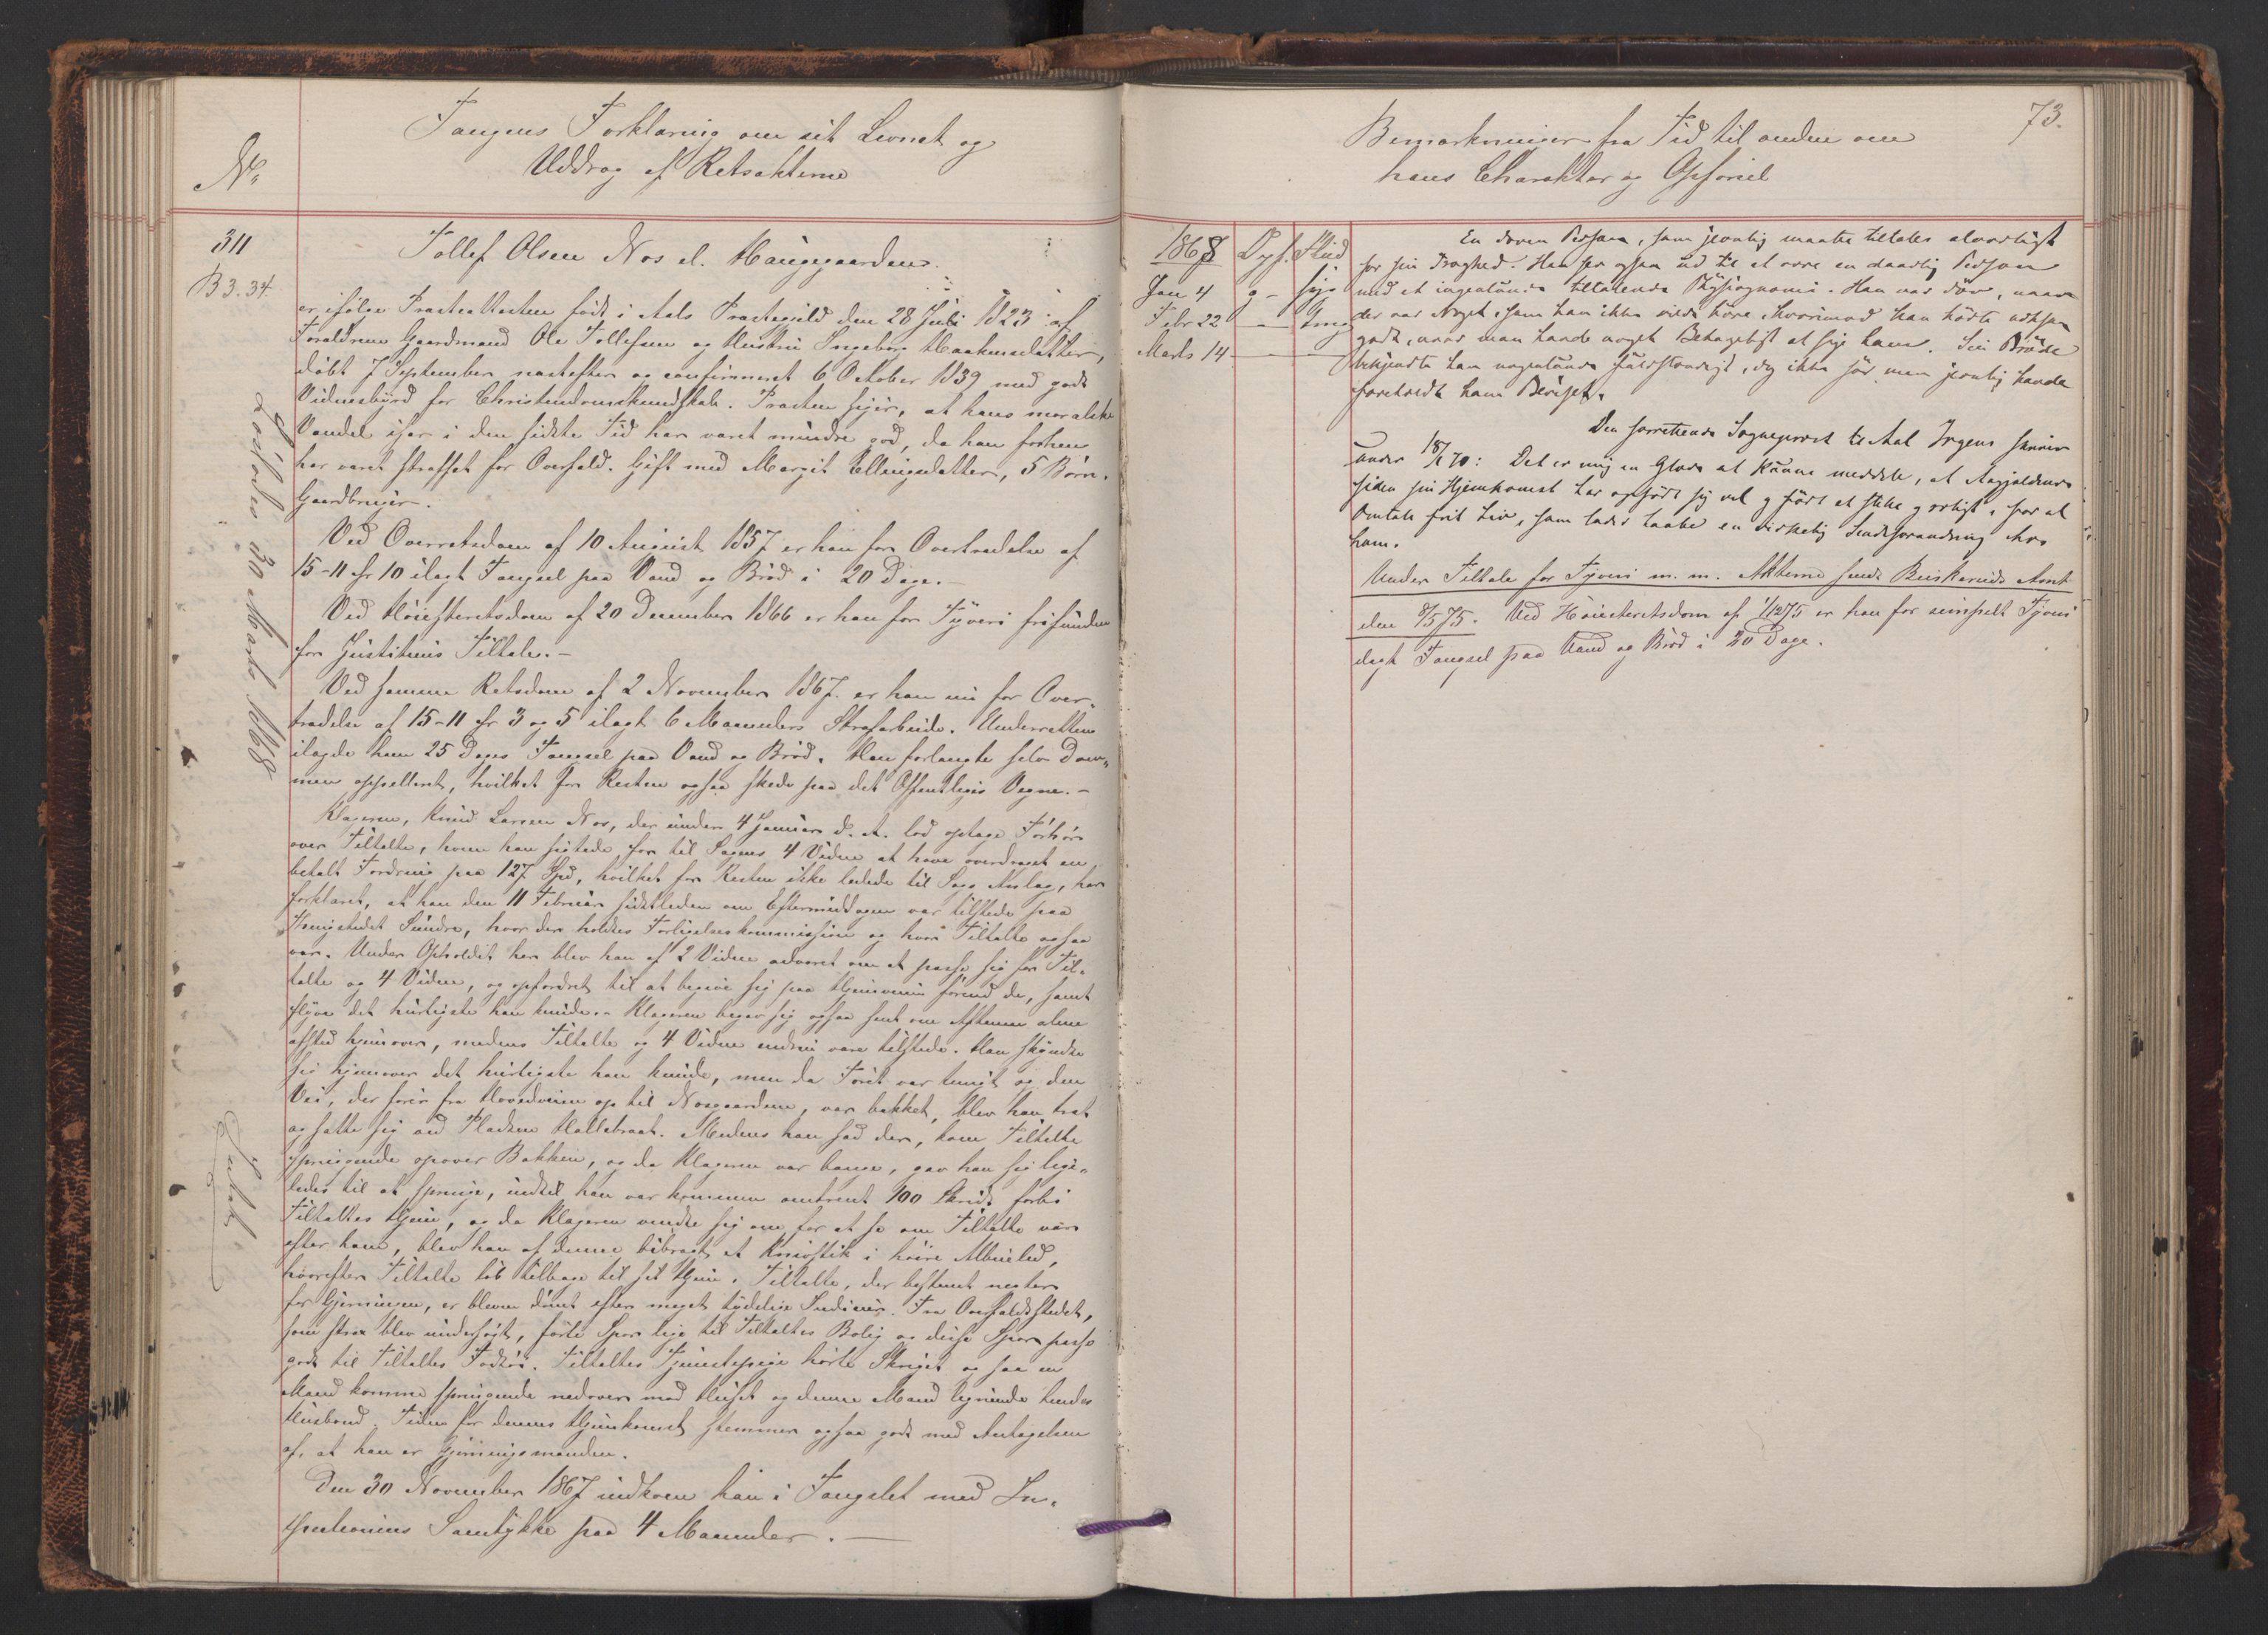 No.
Fangens Forklaring om sit Levnet og
Uddrag af Retsakterne
311
B 3. 34.
Løslades 30 Marts 1868
Tollef Olsen Nos el. Haugegaarden.
er ifølge Præsteattesten født i Aals Præstegjeld den 28 Juli 1823 af
Forældrene Gaardmand Ole Tollefsen og Hustru Ingeborg Haakensdatter,
døbt 7 September næstefter og confirmeret 6 October 1839 med godt
Vidnesbyrd for Christendomskundskab. Præsten siger, at hans moralske
Vandel især i den sidste Tid har været mindre god, da han forhen
har været straffet for Overfald. Gift med Margit Ellingsdatter, 5 Børn.
Gaardbruger.
Ved Overretsdom af 10 August 1857 er han for Overtrædelse af
15-11 cfr 10 ilagt Fængsel paa Vand og Brød i 20 Dage.-
Ved Høiesteretsdom af 20 December 1866 er han for Tyveri frifunden
for Justitiens Tiltale.-
Ved samme Retsdom af 2 November 1867. er han nu for Over-
trædelse af 15-11 cfr 3 og 5 ilagt 6 Maaneders Strafarbeide. Underretten
ilagde ham 25 Dages Fængsel paa Vand og Brød. Han forlangte selv Dom-
men appelleret, hvilket for Resten ogsaa skede paa det Offentliges Vegne.-
Klageren, Knud Larsen Nos, der under 4 Januar d. A. lod optage Forhør
over Tiltalte, hvem han sigtede for til Sagens 4 Vidne at have overdraget en
betalt Fordring paa 127 Spd, hvilket for Resten ikke ledede til Sags Anlæg, har
forklaret, at han den 11 Februar sidstleden om Eftermiddagen var tilstede paa
Thingstedet Sundre, hvor der holdtes Forligelseskommission og hvor Tiltalte ogsaa
var. Under Opholdet her blev han af 2 Vidne advaret om at passe sig for Til-
talte og 4 Vidne, og opfordret til at begive sig paa Hjemveien førend de, samt
skynde det hurtigste han kunde.- Klageren begav sig ogsaa sent om Aftenen alene
afsted hjemover, medens Tiltalte og 4 Vidne endnu vare tilstede. Han skyndte
sig hjemover det hurtigste han kunde, men da Føret var tungt og den
Vei, der fører fra Hovedveien op til Nosgaardene, var bakket, blev han træt
og satte sig ved Pladsen Hallebraat. Medens han sad der, kom Tiltalte
springende opover Bakken, og da Klageren var bange, gav han sig lige-
ledes til at springe, indtil han var kommen omtrent 100 Skridt forbi
Tiltaltes Hjem, og da Klageren vendte sig om for at se om Tiltalte var
efter ham, blev han af denne bibragt et Knivstik i høire Albueled,
hvorefter Tiltalte løb tilbage til sit Hjem. Tiltalte, der bestemt negter
for Gjerningen, er bleven dømt efter meget tydelige Indicier. Fra Overfaldsstedet,
som strax blev undersøgt, førte Spor lige til Tiltaltes Bolig og disse Spor passe
godt til Tiltaltes Fodtøi. Tiltaltes Tjenestepige hørte Skriget og saa en
Mand komme springende nedover mod Huset og denne Mand lignede hendes
Husbond. Tiden for dennes Hjemkomst stemmer ogsaa godt med Antagelsen
af, at han er Gjerningsmanden.
Den 30 November 1867 indkom han i Fængslet med In-
stitutionens Samtykke paa 4 Maaneder.-
73.
Bemærkninger fra Tid til anden om
hans Charakter og Opførsel
1868 Opf. Flid
Jan 4 g -
Febr 22 - -
Marts 14 - -
En doven Person, som jevnlig maatte tiltales alvorligt
for sin Dovenhed. Han ser ogsaa ud til at være en daarlig Person
med et ingenlunde tiltalende Physiognomi. Han var døv, naar
der var Noget, som han ikke vilde høre, hvorimod han hørte
godt, naar man havde noget Behageligt at sige ham. Sin Brøde
bekjendte han ingenlunde fuldstændigt, dog ikke før man jevnlig havde
foreholdt ham Beviset.
Den forrettende Sogneprest til Aal Irgens skriver
under 18/1 70: Det er mig en Glæde at kunne meddele, at Angjældende
siden sin Hjemkomst har opført sig vel og ført et stille og ærligt, for al
Omtale frit Liv, som lader haabe en virkelig Sindsforandring hos
ham.
Under Tiltale for Tyveri m. m. Akterne sendt Buskeruds Amt
den 8/5 75. Ved Høiesteretsdom af 1/12 75 er han for simpelt Tyveri
ilagt Fængsel paa Vand og Brød i 20 Dage.